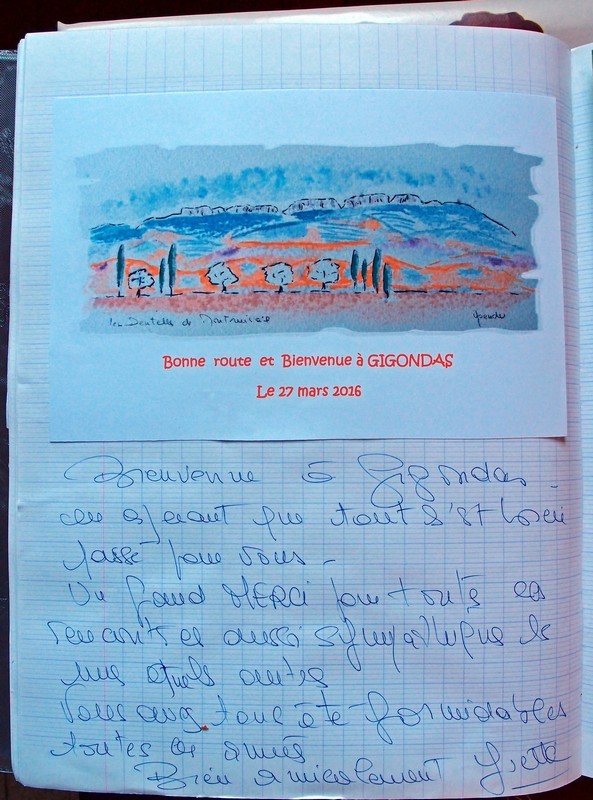 Les Dentelles de Montmirail
Yvette
Bonne route et Bienvenue à GIGONDAS
Le 27 mars 2016
Bienvenue à Gigondas
en espérant que tout s'est bien
passé pour vous
Un grand MERCI pour toutes ces
rencontres aussi sympathiques les
unes que les autres
Vous avez tous été formidables
toutes ces années
Bien amicalement Yvette